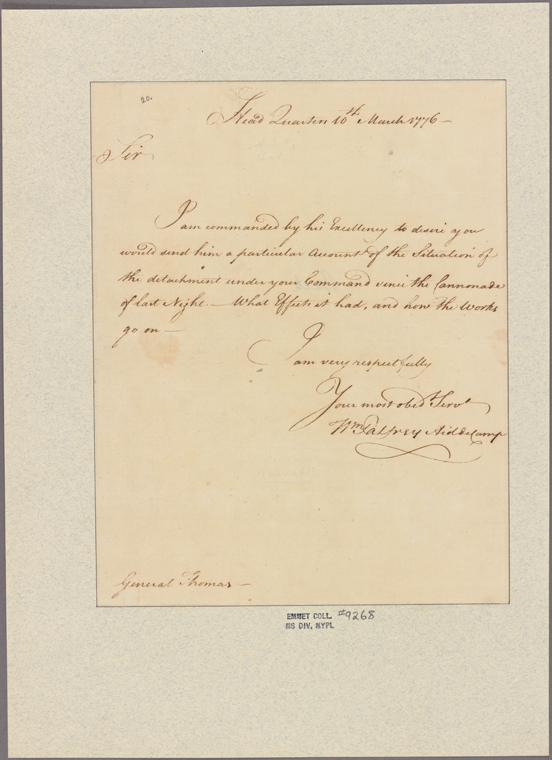 20.
Head Quarters 10th March 1776 —
Sir
I am commanded by his Excellency to desire you
would send him a particular Account of the Situation of
the detachment under your Command since the Cannonade
of last Night — What Effects it had, and how the Works
go on —
I
am very respectfully
Your most obedt Servt
Wm Palfrey Aid de Camp
General Thomas —
EMMET COLL. #9268
MS DIV, NYPL